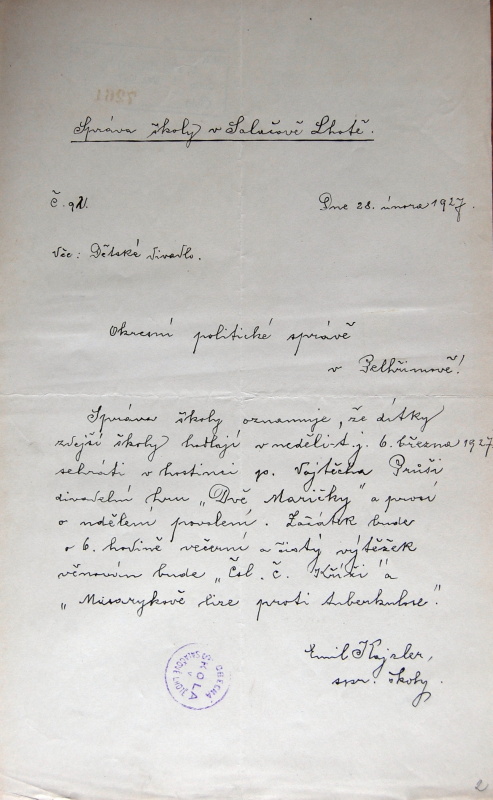 Správa školy v Salačově Lhotě.
Č. 91.
Dne 28. února 1927.
Věc: Dětské divadlo.
Okresní politické správě
v Pelhřimově!
Správa školy oznamuje, že dítky
zdejší školy hodlají v neděli t. j. 6. března 1927
sehráti v hostinci p. Vojtěcha Průši
divadelní hru „Dvě Maričky" a prosí
o udělení povolení. Začátek bude
o 6. hodině večerní a čistý výtěžek
věnován bude „Čsl. č. Kříži" a
„Masarykově lize proti tuberkulose".
Emil Kajzler,
spr. školy.
OBECNÁ ŠKOLA
2